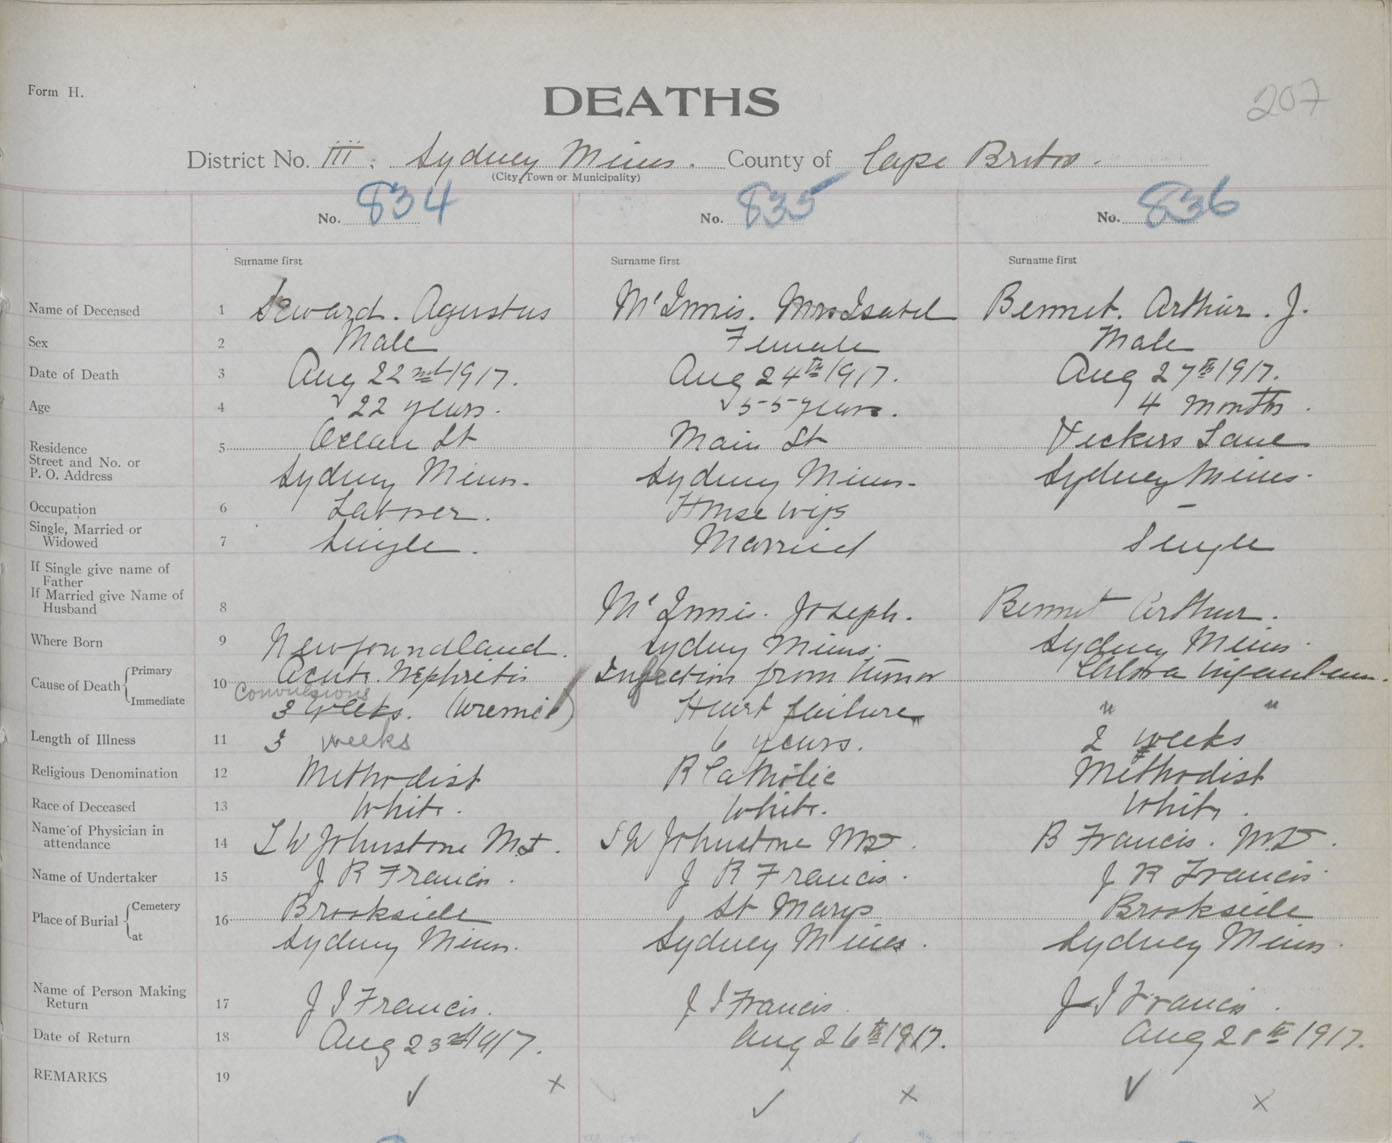 Form H.
DEATHS
207
District No. III. Sydney Mines. County of Cape Breton.
(City, Town or Municipality)
No. 834 No. 835 No. 836
Surname first Surname first Surname first
Name of Deceased 1 Seward. Agustus McInnis. Mrs Isabel Bennet. Arthur. J.
Sex 2 Male Female Male
Date of Death 3 Aug 22nd 1917. Aug 24th 1917. Aug 27th 1917.
Age 4 22 years. 55 years. 4 months.
Residence Street and No. or P. O. Address 5 Ocean St Main St Vickers Lane
Sydney Mines. Sydney Mines. Sydney Mines.
Occupation 6 Laborer. House wife –
Single, Married or Widowed 7 Single. Married Single
If Single give name of Father
If Married give Name of Husband 8 McInnis. Joseph. Bennet Arthur.
Where Born 9 Newfoundland. Sydney Mines. Sydney Mines.
Cause of Death Primary 10 Acute. Nephritis Infection from tumor Cholera infantum.
Immediate Convulsions 3 weeks. (uremic) Heart failure " "
Length of Illness 11 3 weeks 6 years. 2 weeks
Religious Denomination 12 Methodist R Catholic Methodist
Race of Deceased 13 White. White. White.
Name of Physician in attendance 14 L W Johnstone MD. L W Johnstone MD. B Francis. MD.
Name of Undertaker 15 J R Francis. J R Francis. J R Francis.
Place of Burial Cemetery 16 Brookside St Marys Brookside
at Sydney Mines. Sydney Mines. Sydney Mines.
Name of Person Making Return 17 J I Francis. J I Francis. J I Francis.
Date of Return 18 Aug 23rd 1917. Aug 26th 1917. Aug 28th 1917.
REMARKS 19 ✓ x ✓ x ✓ x